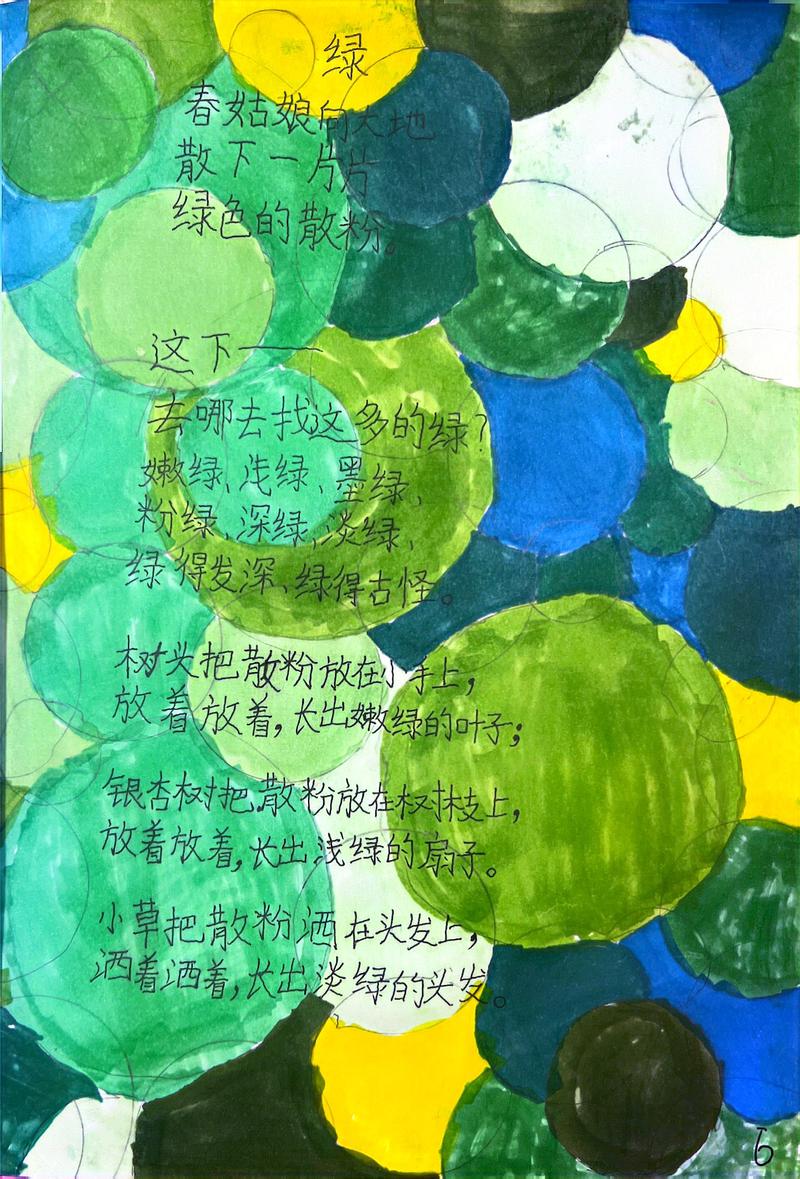 绿
春姑娘向大地
散下一片片
绿色的散粉。
这下——
去哪去找这多的绿?
嫩绿、浅绿、墨绿、
粉绿、深绿、淡绿、
绿得发深、绿得古怪。
树头把散粉放在小手上,
放着放着,长出嫩绿的叶子;
银杏树把散粉放在树枝上,
放着放着,长出浅绿的扇子。
小草把散粉洒在头发上,
洒着洒着,长出淡绿的头发。